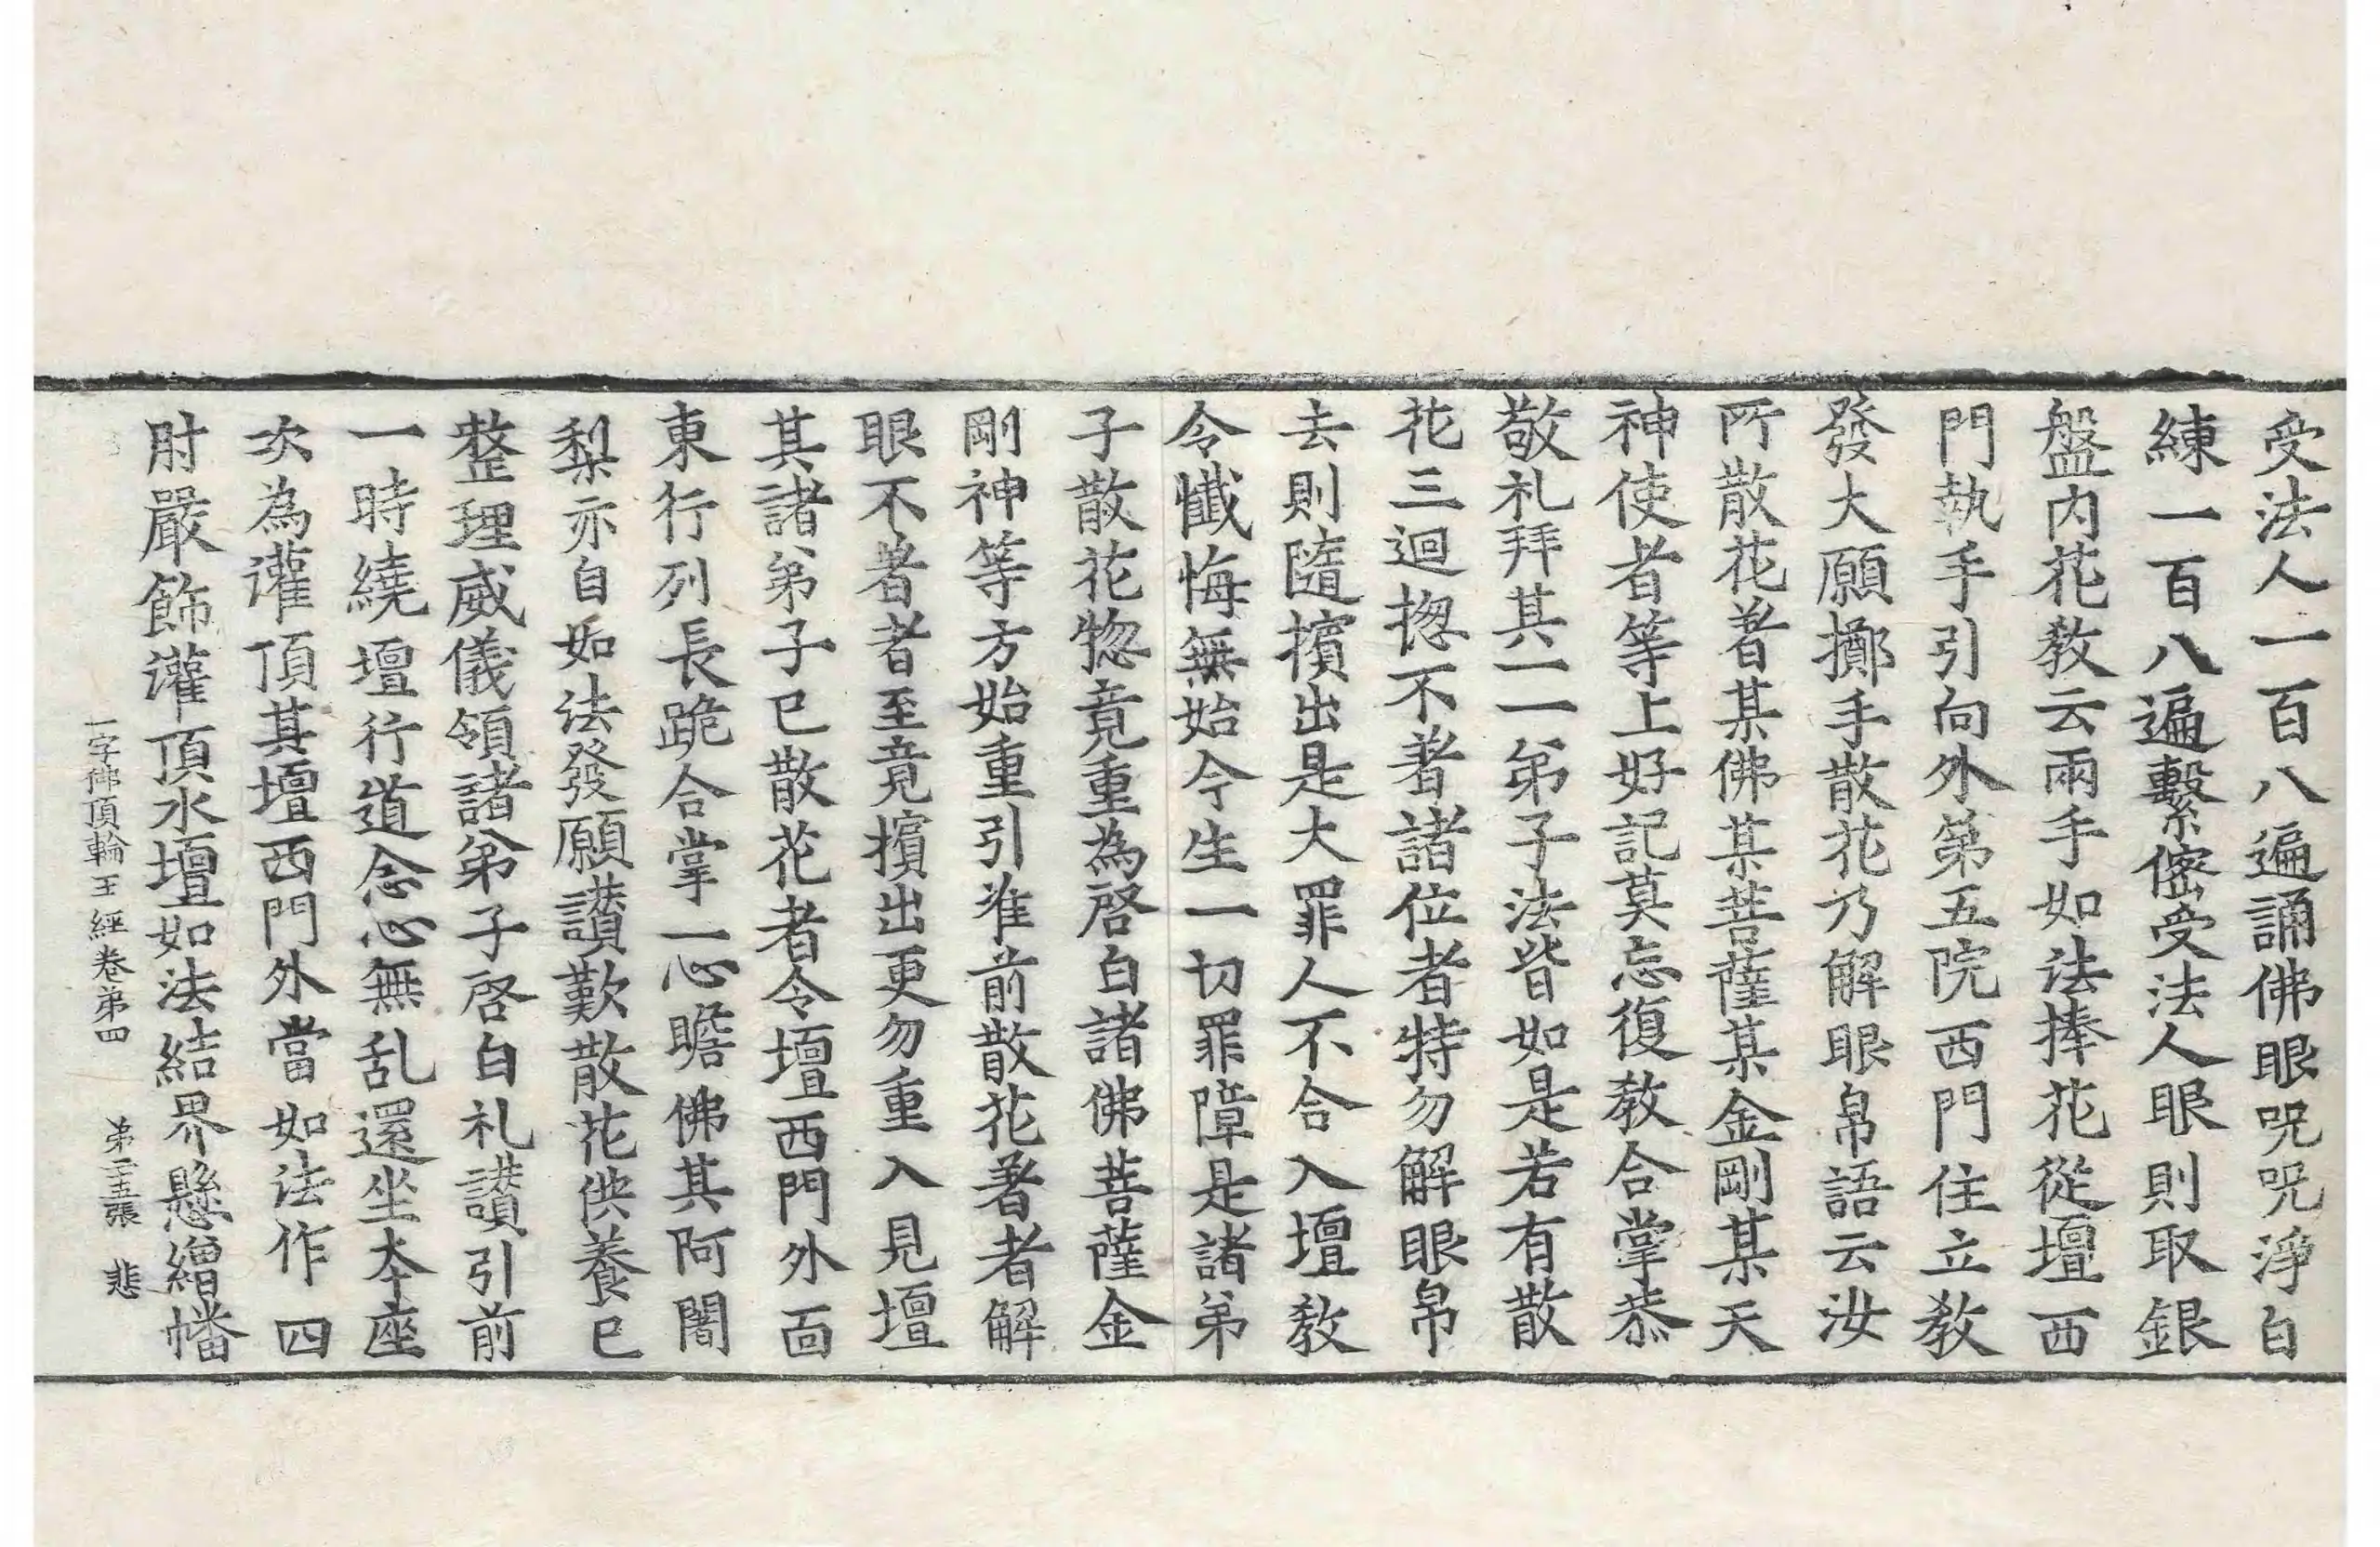 受法人一百八遍誦佛眼呪呪淨白
練一百八遍繫㒻受法人眼則取銀
盤內花教云兩手如法捧花從壇西
門執手引向外第五院西門住立教
發大願擲手散花乃解眼帛語云汝
所散花著某佛某菩薩某金剛某天
神使者等上好記莫忘復教合掌恭
敬礼拜其一一弟子法皆如是若有散
花三迴揔不著諸位者特勿解眼帛
去則隨擯出是大罪人不合入壇教
令懺悔無始今生一切罪障是諸弟
子散花惣竟重為啓白諸佛菩薩金
剛神等方始重引准前散花著者解
眼不著者至竟擯出更勿重入見壇
其諸弟子已散花者令壇西門外面
東行列長跪合掌一心瞻佛其阿闍
梨亦自如法發願讃歎散花供養已
整理威儀領諸弟子啓白礼讃引前
一時繞壇行道念心無乱還坐夲座
次為灌頂其壇西門外當如法作四
肘嚴飾灌頂水壇如法結界懸繒幡
一字佛頂輪王經卷第四 第二十五張 悲